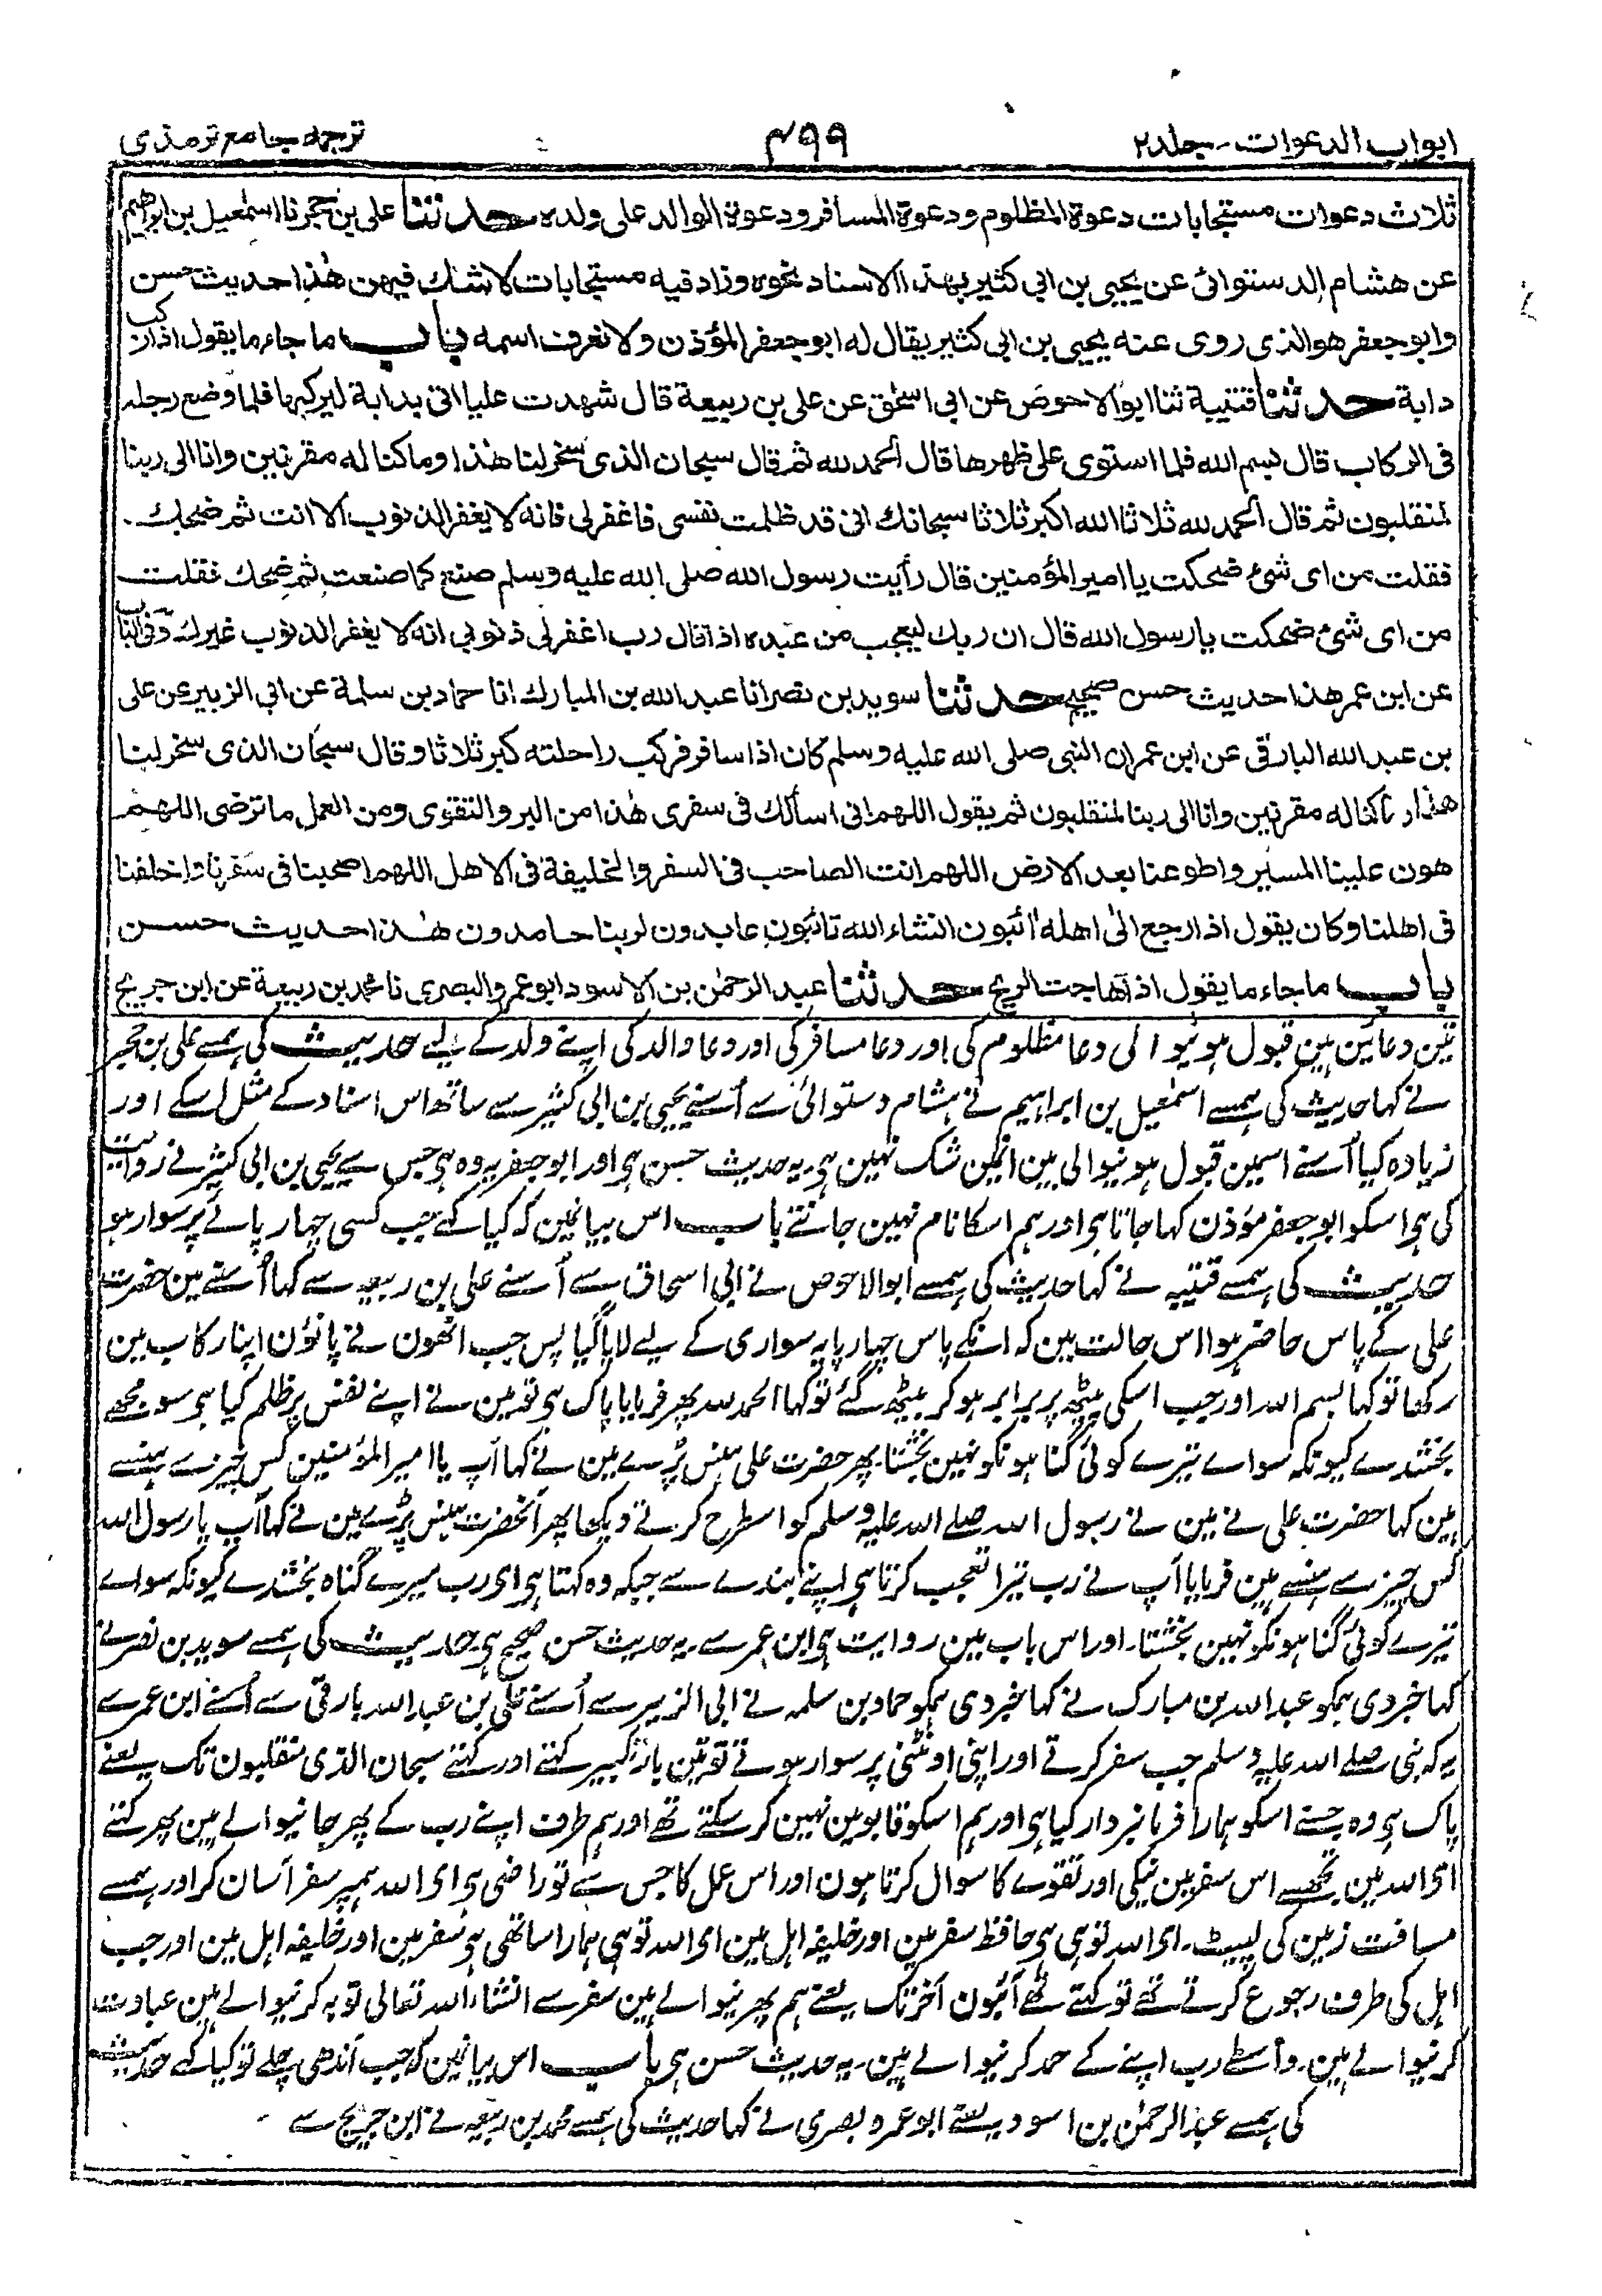 ابواب الدعوات - جلد ۲
۴۹۹
ترجمہ جامع ترمذی
ثلاث دعوات مستجابات دعوة المظلوم ودعوة المسافر ودعوة الوالد على ولده حدثنا على بن حجر نا اسمٰعيل بن ابراهيم
عن هشام الدستوائى عن يحيى بن ابى كثير بهذا الاسناد نحوه وزاد فيه مستجابات لا شك فيهن هٰذا حديث حسن
وابو جعفر هو الذى روى عنه يحيى بن ابى كثير يقال له ابو جعفر المؤذن ولا نعرف اسمه باب ما جاء ما يقول اذا ركب
دابة حدثنا قتيبة ثنا ابو الاحوص عن ابى اسحٰق عن على بن ربيعة قال شهدت عليا اتى بدابة ليركبها فلما وضع رجله
فى الركاب قال بسم الله فلما استوى على ظهرها قال الحمد لله ثم قال سبحان الذى سخر لنا هٰذا وما كنا له مقرنين وانا الى ربنا
لمنقلبون ثم قال الحمد لله ثلاثا الله اكبر ثلاثا سبحانك انى قد ظلمت نفسى فاغفر لى فانه لا يغفر الذنوب الا انت ثم ضحك
فقلت من اى شئ ضحكت يا امير المؤمنين قال رأيت رسول الله صلى الله عليه وسلم صنع كما صنعت ثم ضحك فقلت
من اى شئ ضحكت يا رسول الله قال ان ربك ليعجب من عبده اذا قال رب اغفر لى ذنوبى انه لا يغفر الذنوب غيرك وفى الباب
عن ابن عمر هذا حديث حسن صحيح حدثنا سويد بن نصر انا عبد الله بن المبارك انا حماد بن سلمة عن ابى الزبير عن على
بن عبد الله البارقى عن ابن عمر ان النبى صلى الله عليه وسلم كان اذا سافر فركب راحلته كبر ثلاثا وقال سبحان الذى سخر لنا
هذا وما كنا له مقرنين وانا الى ربنا لمنقلبون ثم يقول اللهم انى اسألك فى سفرى هٰذا من البر والتقوى ومن العمل ما ترضى اللهم
هون علينا المسير واطو عنا بعد الارض اللهم انت الصاحب فى السفر والخليفة فى الاهل اللهم اصحبنا فى سفرنا واخلفنا
فى اهلنا وكان يقول اذا رجع الىٰ اهله اٰئبون انشاء الله تائبون عابدون لربنا حامدون هٰذا حديث حسن
باب ما جاء ما يقول اذا هاجت الريح حدثنا عبد الرحمٰن بن الاسود ابو عمرو البصرى نا محمد بن ربيعة عن ابن جريج
تین دعائین ہین قبول ہونیوالی دعا مظلوم کی اور دعا مسافر کی اور دعا والد کی اپنے ولد کے لیے حدیث کی ہمسے علی بن حجر
نے کہا حدیث کی ہمسے اسمٰعیل بن ابراہیم نے ہشام دستوائی سے اُسنے یحیی بن ابی کثیر سے ساتھ اس اسناد کے مثل اسکے اور
زیادہ کیا اُسنے اسمین قبول ہونیوالی ہین انمین شک نہین ہی۔ یہ حدیث حسن ہی اور ابو جعفر یہ وہ ہی جس سے یحیی بن ابی کثیر نے روایت
کی ہی اسکو ابو جعفر مؤذن کہا جاتا ہی اور ہم اسکا نام نہین جانتے باب اس بیانمین کہ کیا کہے جب کسی چہار پائے پر سوار ہو
حدیث کی ہمسے قتیبہ نے کہا حدیث کی ہمسے ابوالاحوص نے ابی اسحاق سے اُسنے علی بن ربیعہ سے کہا اُسنے مین حضرت
علی کے پاس حاضر ہوا اس حالت مین کہ انکے پاس چہار پایہ سواری کے لیے لایا گیا پس جب انھون نے پانؤن اپنا رکاب مین
رکھا تو کہا بسم اللہ اور جب اسکی پیٹھ پر برابر ہوکر بیٹھ گئے تو کہا الحمد للہ پھر فرمایا پاک ہی تو مین نے اپنے نفس پر ظلم کیا ہی سو مجھے
بخشدے کیونکہ سواے تیرے کوئی گناہونکو نہین بخشتا۔ پھر حضرت علی ہنس پڑے مین نے کہا آپ یا امیر المؤمنین کس چیز سے ہنسے
ہین کہا حضرت علی نے مین نے رسول اللہ صلے اللہ علیہ وسلم کو اسطرح کرتے دیکھا پھر آنحضرت ہنس پڑے مین نے کہا آپ یا رسول اللہ
کس چیز سے ہنسے ہین فرمایا آپ نے رب تیرا تعجب کرتا ہی اپنے بندے سے جبکہ وہ کہتا ہی ای رب میرے گناہ بخشدے کیونکہ سواے
تیرے کوئی گناہونکو نہین بخشتا۔ اور اس باب مین روایت ہی ابن عمر سے۔ یہ حدیث حسن صحیح ہی۔ حدیث کی ہمسے سوید بن نصر نے
کہا خبر دی ہمکو عبداللہ بن مبارک نے کہا خبر دی ہمکو حماد بن سلمہ نے ابی الزبیر سے اُسنے علی بن عبداللہ بارقی سے اُسنے ابن عمر سے
یہ کہ نبی صلے اللہ علیہ وسلم جب سفر کرتے اور اپنی اونٹنی پر سوار ہوتے تو تین بار تکبیر کہتے اور کہتے سبحان الذی منقلبون تک یعنے
پاک ہی وہ جسنے اسکو ہمارا فرمانبردار کیا ہی اور ہم اسکو قابو مین نہین کر سکتے تھے اور ہم طرف اپنے رب کے پھر جانیوالے ہین پھر کہتے
ای اللہ مین تجھسے اس سفر مین نیکی اور تقوے کا سوال کرتا ہون اور اس عمل کا جس سے تو راضی ہی ای اللہ ہمپر سفر آسان کر اور ہمسے
مسافت زمین کی لپیٹ۔ ای اللہ تو ہی ہی حافظ سفر مین اور خلیفہ اہل مین ای اللہ تو ہی ہمارا ساتھی ہی سفر مین اور خلیفہ اہل مین اور جب
اہل کی طرف رجوع کرتے تھے تو کہتے تھے آئبون آخر تک یعنے ہم پھرنیوالے ہین سفر سے انشاء اللہ تعالی توبہ کرنیوالے ہین عبادت
کرنیوالے ہین۔ واسطے رب اپنے کے حمد کرنیوالے ہین۔ یہ حدیث حسن ہی باب اس بیانمین کہ جب آندھی چلے تو کیا کہے حدیث
کی ہمسے عبدالرحمٰن بن اسود یعنے ابو عمرو بصری نے کہا حدیث کی ہمسے محمد بن ربیعہ نے ابن جریج سے